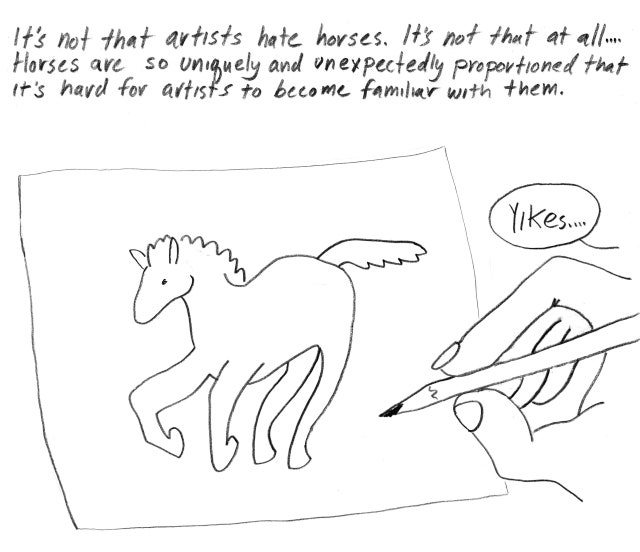 It's not that artists hate horses. It's not that at all....
Horses are so uniquely and unexpectedly proportioned that
it's hard for artists to become familiar with them.
Yikes....